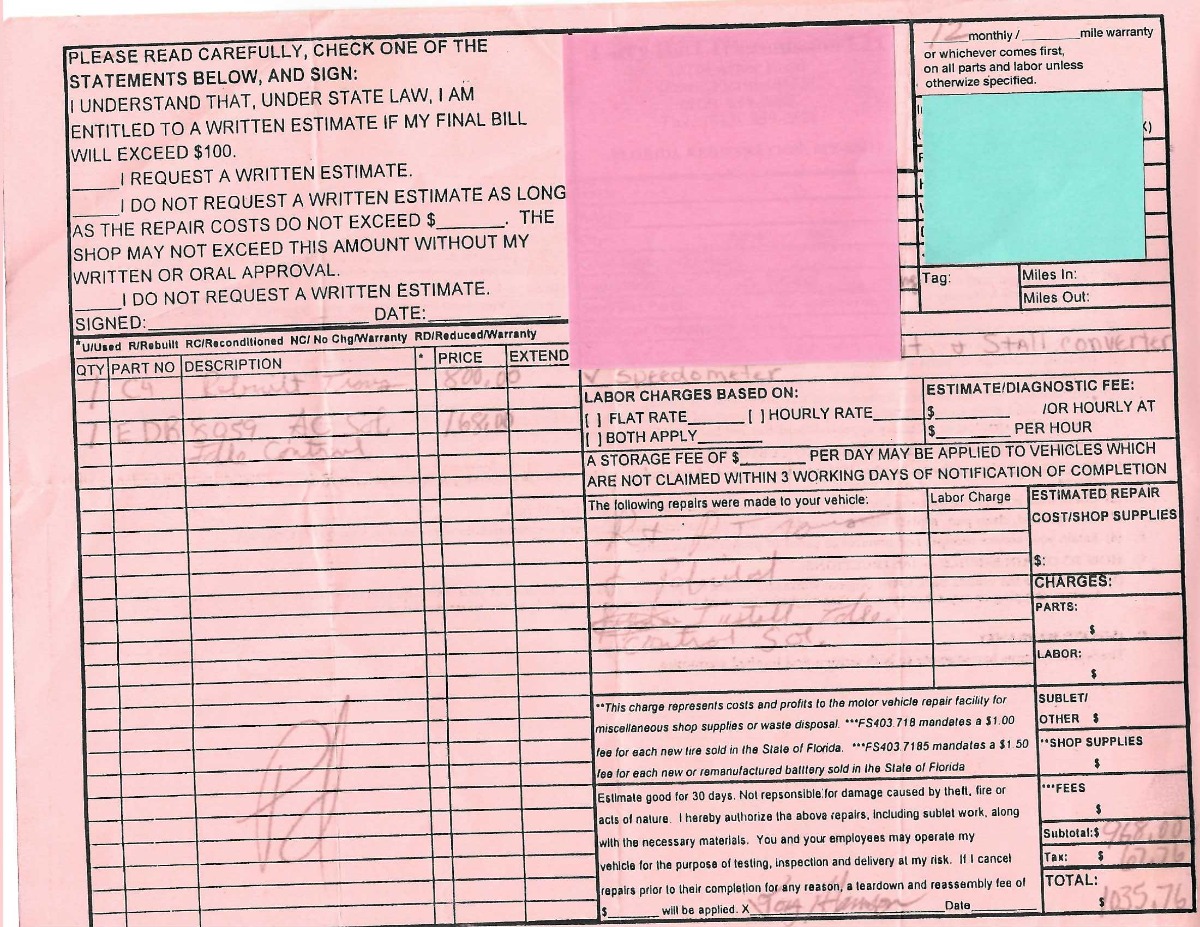 PLEASE READ CAREFULLY, CHECK ONE OF THE
STATEMENTS BELOW, AND SIGN:
I UNDERSTAND THAT, UNDER STATE LAW, I AM
ENTITLED TO A WRITTEN ESTIMATE IF MY FINAL BILL
WILL EXCEED $100.
_____I REQUEST A WRITTEN ESTIMATE.
_____I DO NOT REQUEST A WRITTEN ESTIMATE AS LONG
AS THE REPAIR COSTS DO NOT EXCEED $_______. THE
SHOP MAY NOT EXCEED THIS AMOUNT WITHOUT MY
WRITTEN OR ORAL APPROVAL.
_____I DO NOT REQUEST A WRITTEN ESTIMATE.
SIGNED:____________________ DATE:____________
12 monthly / ________mile warranty
or whichever comes first,
on all parts and labor unless
otherwize specified.
Tag:
Miles In:
Miles Out:
*U/Used R/Rebuilt RC/Reconditioned NC/ No Chg/Warranty RD/Reduced/Warranty
QTY PART NO DESCRIPTION * PRICE EXTEND
1 C4 Rebuilt Trans 800.00
1 EDR 8059 AC Sol 168.00
Idle Control
& Stall converter
✓ Speedometer
LABOR CHARGES BASED ON:
[ ] FLAT RATE______ [ ] HOURLY RATE______
[ ] BOTH APPLY_______
ESTIMATE/DIAGNOSTIC FEE:
$_________ /OR HOURLY AT
$_________ PER HOUR
A STORAGE FEE OF $_______ PER DAY MAY BE APPLIED TO VEHICLES WHICH
ARE NOT CLAIMED WITHIN 3 WORKING DAYS OF NOTIFICATION OF COMPLETION
The following repairs were made to your vehicle: Labor Charge
Trans
Install Idle
Control Sol.
ESTIMATED REPAIR
COST/SHOP SUPPLIES
$:
CHARGES:
PARTS:
$
LABOR:
$
SUBLET/
OTHER $
**SHOP SUPPLIES
$
***FEES
$
Subtotal:$ 968.00
Tax: $ 67.76
TOTAL:
$ 1035.76
**This charge represents costs and profits to the motor vehicle repair facility for
miscellaneous shop supplies or waste disposal. ***FS403.718 mandates a $1.00
fee for each new tire sold in the State of Florida. ***FS403.7185 mandates a $1.50
fee for each new or remanufactured batltery sold in the State of Florida
Estimate good for 30 days. Not repsonsible for damage caused by theft, fire or
acts of nature. I hereby authorize the above repairs, including sublet work, along
with the necessary materials. You and your employees may operate my
vehicle for the purpose of testing, inspection and delivery at my risk. If I cancel
repairs prior to their completion for any reason, a teardown and reassembly fee of
$_________ will be applied. X____________________ Date_________
Pd